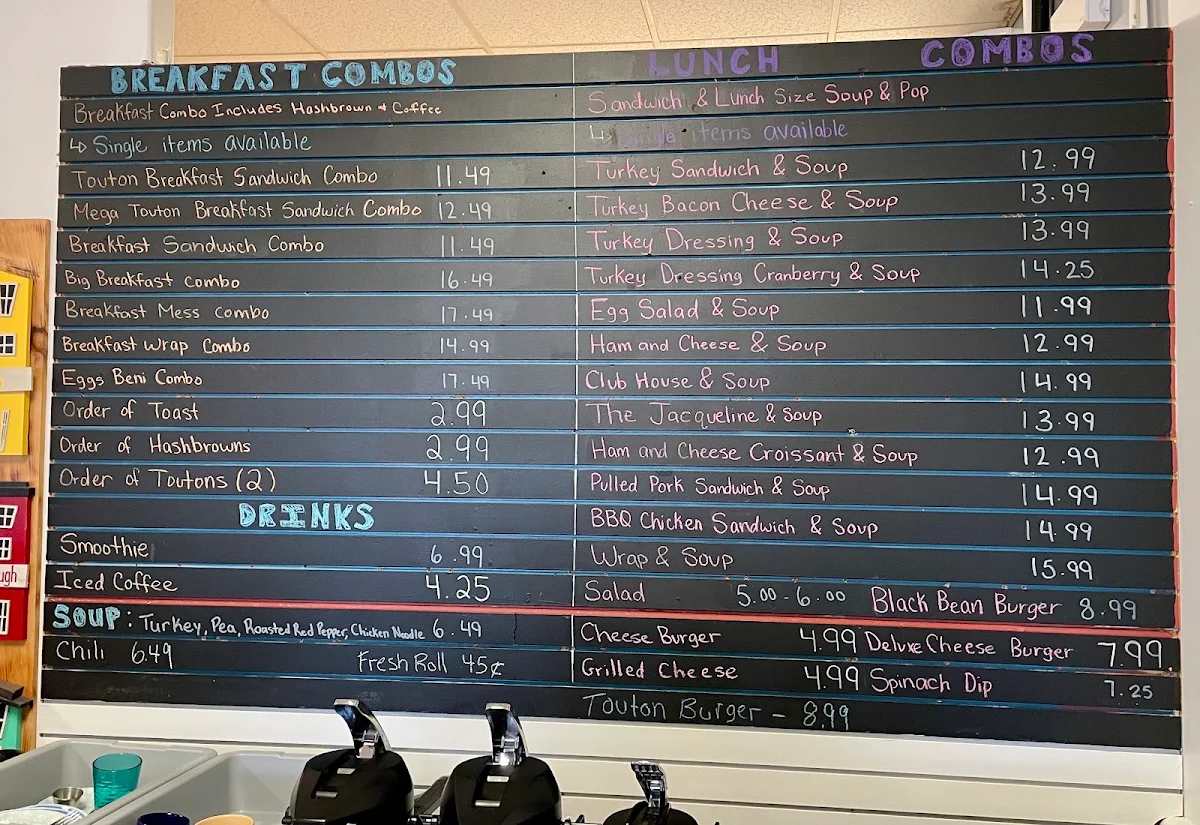 BREAKFAST COMBOS
Breakfast Combo Includes Hashbrown + Coffee
↳ Single items available
Touton Breakfast Sandwich Combo 11.49
Mega Touton Breakfast Sandwich Combo 12.49
Breakfast Sandwich Combo 11.49
Big Breakfast combo 16.49
Breakfast Mess combo 17.49
Breakfast Wrap Combo 14.99
Eggs Beni Combo 17.49
Order of Toast 2.99
Order of Hashbrowns 2.99
Order of Toutons (2) 4.50
DRINKS
Smoothie 6.99
Iced Coffee 4.25
SOUP: Turkey, Pea, Roasted Red Pepper, Chicken Noodle 6.49
Chili 6.49 Fresh Roll 45¢
LUNCH COMBOS
Sandwich & Lunch Size Soup & Pop
↳ Single items available
Turkey Sandwich & Soup 12.99
Turkey Bacon Cheese & Soup 13.99
Turkey Dressing & Soup 13.99
Turkey Dressing Cranberry & Soup 14.25
Egg Salad & Soup 11.99
Ham and Cheese & Soup 12.99
Club House & Soup 14.99
The Jacqueline & Soup 13.99
Ham and Cheese Croissant & Soup 12.99
Pulled Pork Sandwich & Soup 14.99
BBQ Chicken Sandwich & Soup 14.99
Wrap & Soup 15.99
Salad 5.00-6.00 Black Bean Burger 8.99
Cheese Burger 4.99 Deluxe Cheese Burger 7.99
Grilled Cheese 4.99 Spinach Dip 7.25
Touton Burger - 8.99
ugh